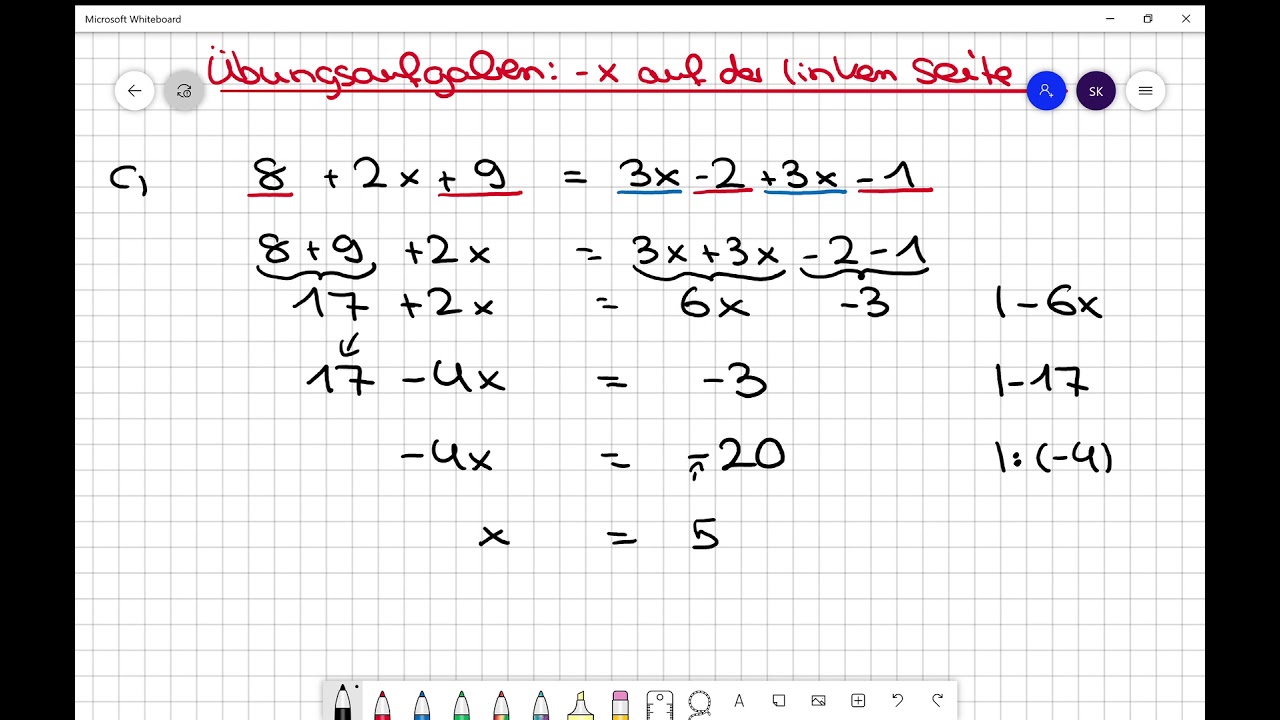 Microsoft Whiteboard
Übungsaufgaben: -x auf der linken Seite
SK
c) 8 + 2x + 9 = 3x - 2 + 3x - 1
8 + 9 + 2x = 3x + 3x - 2 - 1
17 + 2x = 6x - 3 | - 6x
17 - 4x = - 3 | - 17
- 4x = - 20 | : (-4)
x = 5
A